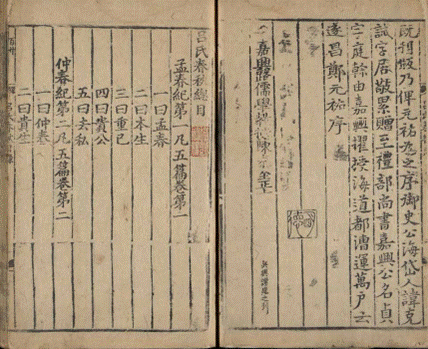 既刊版乃俾元祐為之序御史公海岱人諱克
誠字居敬累贈至禮部尚書嘉興公名貞
字庭榦由嘉興擢授海道都漕運萬戶云
遂昌鄭元祐序
嘉興路儒學教授陳
吳興謝盛之刊
呂氏春秋總目
孟春紀第一凡五篇卷第一
一曰孟春
二曰本生
三曰重己
四曰貴公
五曰去私
仲春紀第二凡五篇卷第二
一曰仲春
二曰貴生